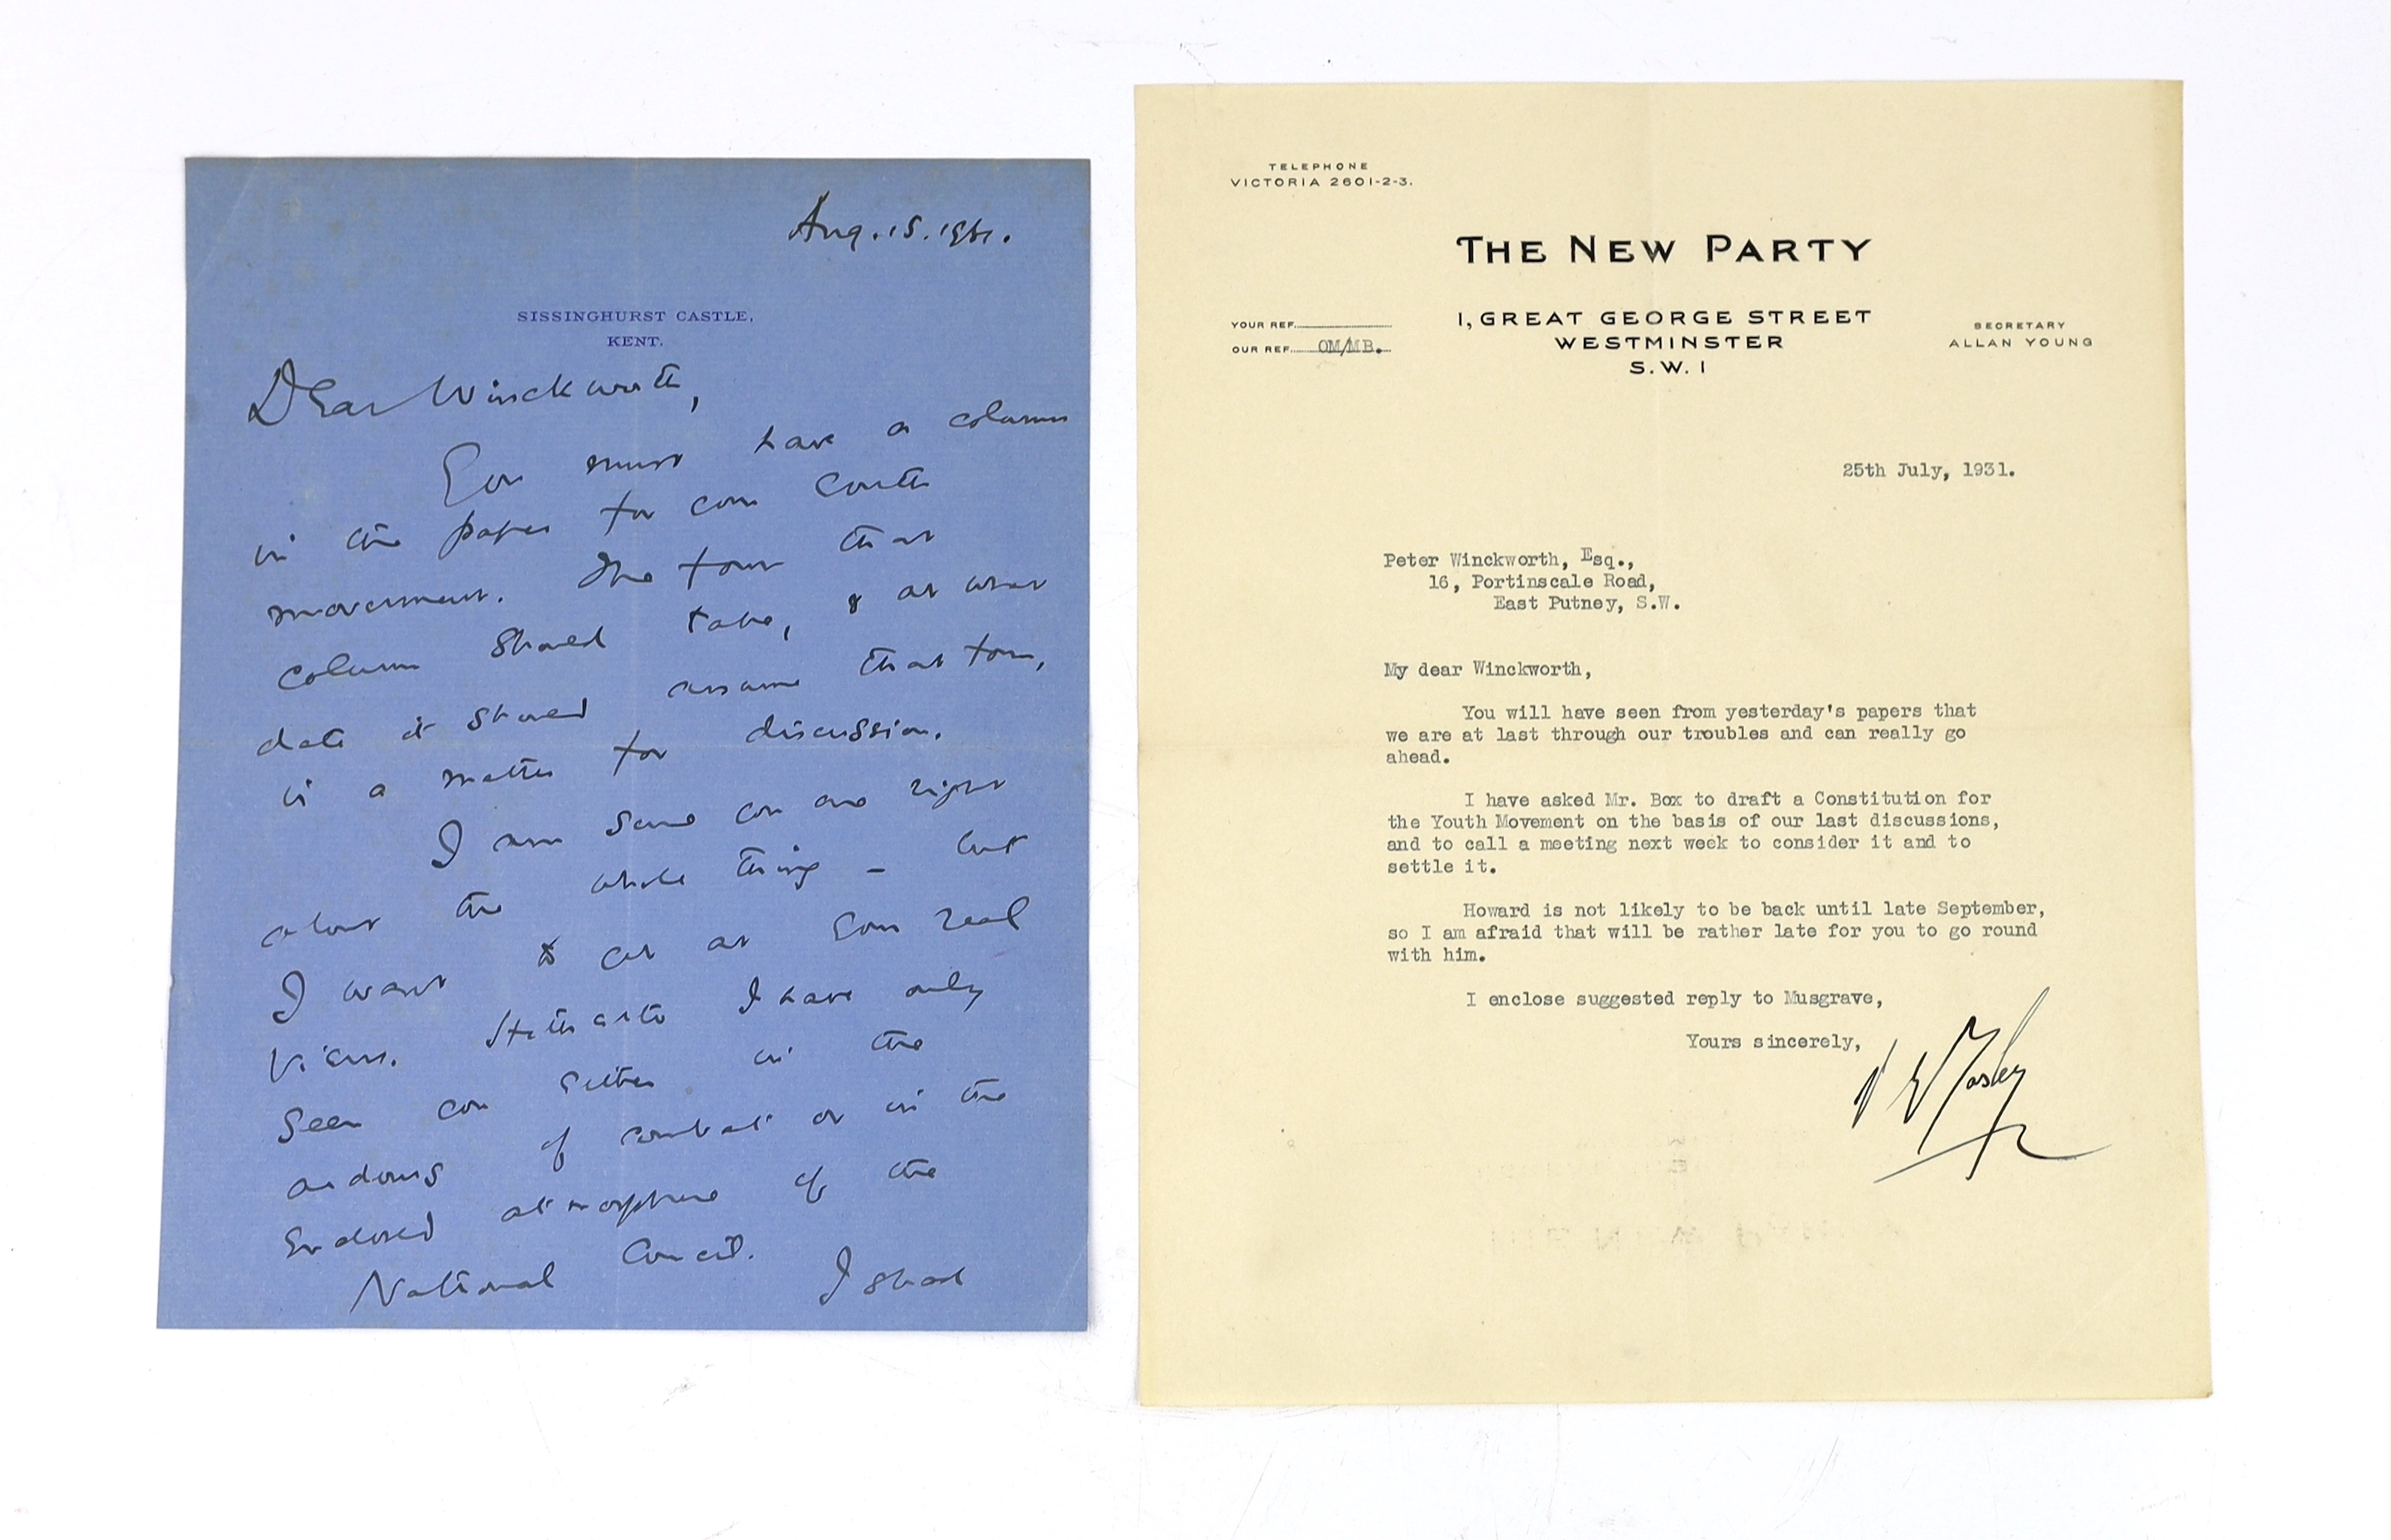 Aug. 15. 1931.
SISSINGHURST CASTLE,
KENT.
Dear Winckworth,
You must have a column
in the paper for your youth
movement. The form that
column should take, & at what
date it should assume that form,
is a matter for discussion.
I am sure you are right
about the whole thing – but
I want to get at your real
views. Hitherto I have only
seen you either in the
ardours of combat or in the
enclosed atmosphere of the
National Council. I shall
TELEPHONE
VICTORIA 2601-2-3.
THE NEW PARTY
1, GREAT GEORGE STREET
WESTMINSTER
S.W. 1
YOUR REF.
OUR REF. OM/MB.
SECRETARY
ALLAN YOUNG
25th July, 1931.
Peter Winckworth, Esq.,
16, Portinscale Road,
East Putney, S.W.
My dear Winckworth,
You will have seen from yesterday's papers that
we are at last through our troubles and can really go
ahead.
I have asked Mr. Box to draft a Constitution for
the Youth Movement on the basis of our last discussions,
and to call a meeting next week to consider it and to
settle it.
Howard is not likely to be back until late September,
so I am afraid that will be rather late for you to go round
with him.
I enclose suggested reply to Musgrave,
Yours sincerely,
Mosley